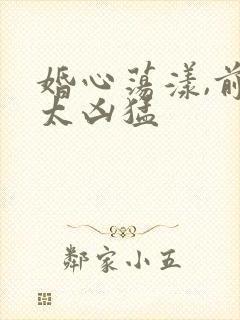 婚心荡漾,前
太凶猛
鄰家小五